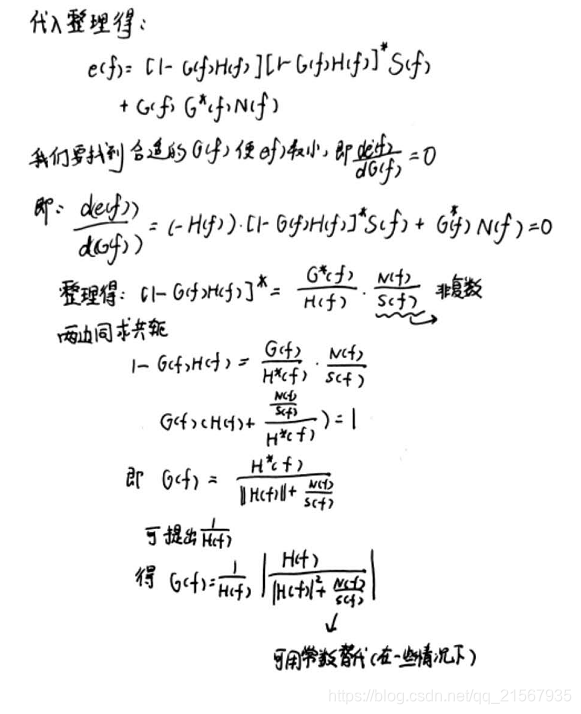 代入整理得:
e(f) = [1- G(f)H(f)][1- G(f)H(f)]* S(f)
+ G(f) G*(f) N(f)
我们要找到合适的G(f)使e(f)最小, 即 de(f)/dG(f) = 0
即: d(e(f))/d(G(f)) = (-H(f))·[1- G(f)H(f)]* S(f) + G*(f) N(f) = 0
整理得: [1- G(f)H(f)]* = G*(f)/H(f) · N(f)/S(f) → 非复数
两边同求共轭
1- G(f)H(f) = G(f)/H*(f) · N(f)/S(f)
G(f)(H(f) + (N(f)/S(f))/H*(f)) = 1
即 G(f) = H*(f)/(||H(f)|| + N(f)/S(f))
可提出 1/H(f)
得 G(f) = 1/H(f) |H(f)/(|H(f)|² + N(f)/S(f))|
↓
可用常数替代(在一些情况下)
https://blog.csdn.net/qq_21567935